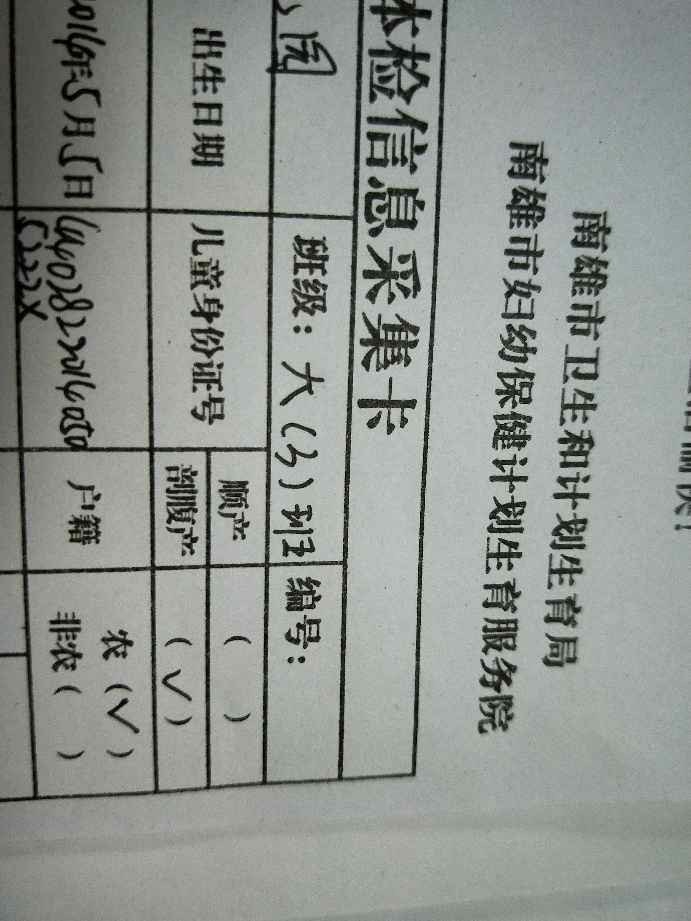 南雄市卫生和计划生育局
南雄市妇幼保健计划生育服务院
体检信息采集卡
园 班级：大（3）班 编号：
出生日期 儿童身份证号 顺产 （ ）
剖腹产 （√）
2016年5月5日 户籍 农（√）
非农（ ）
522X